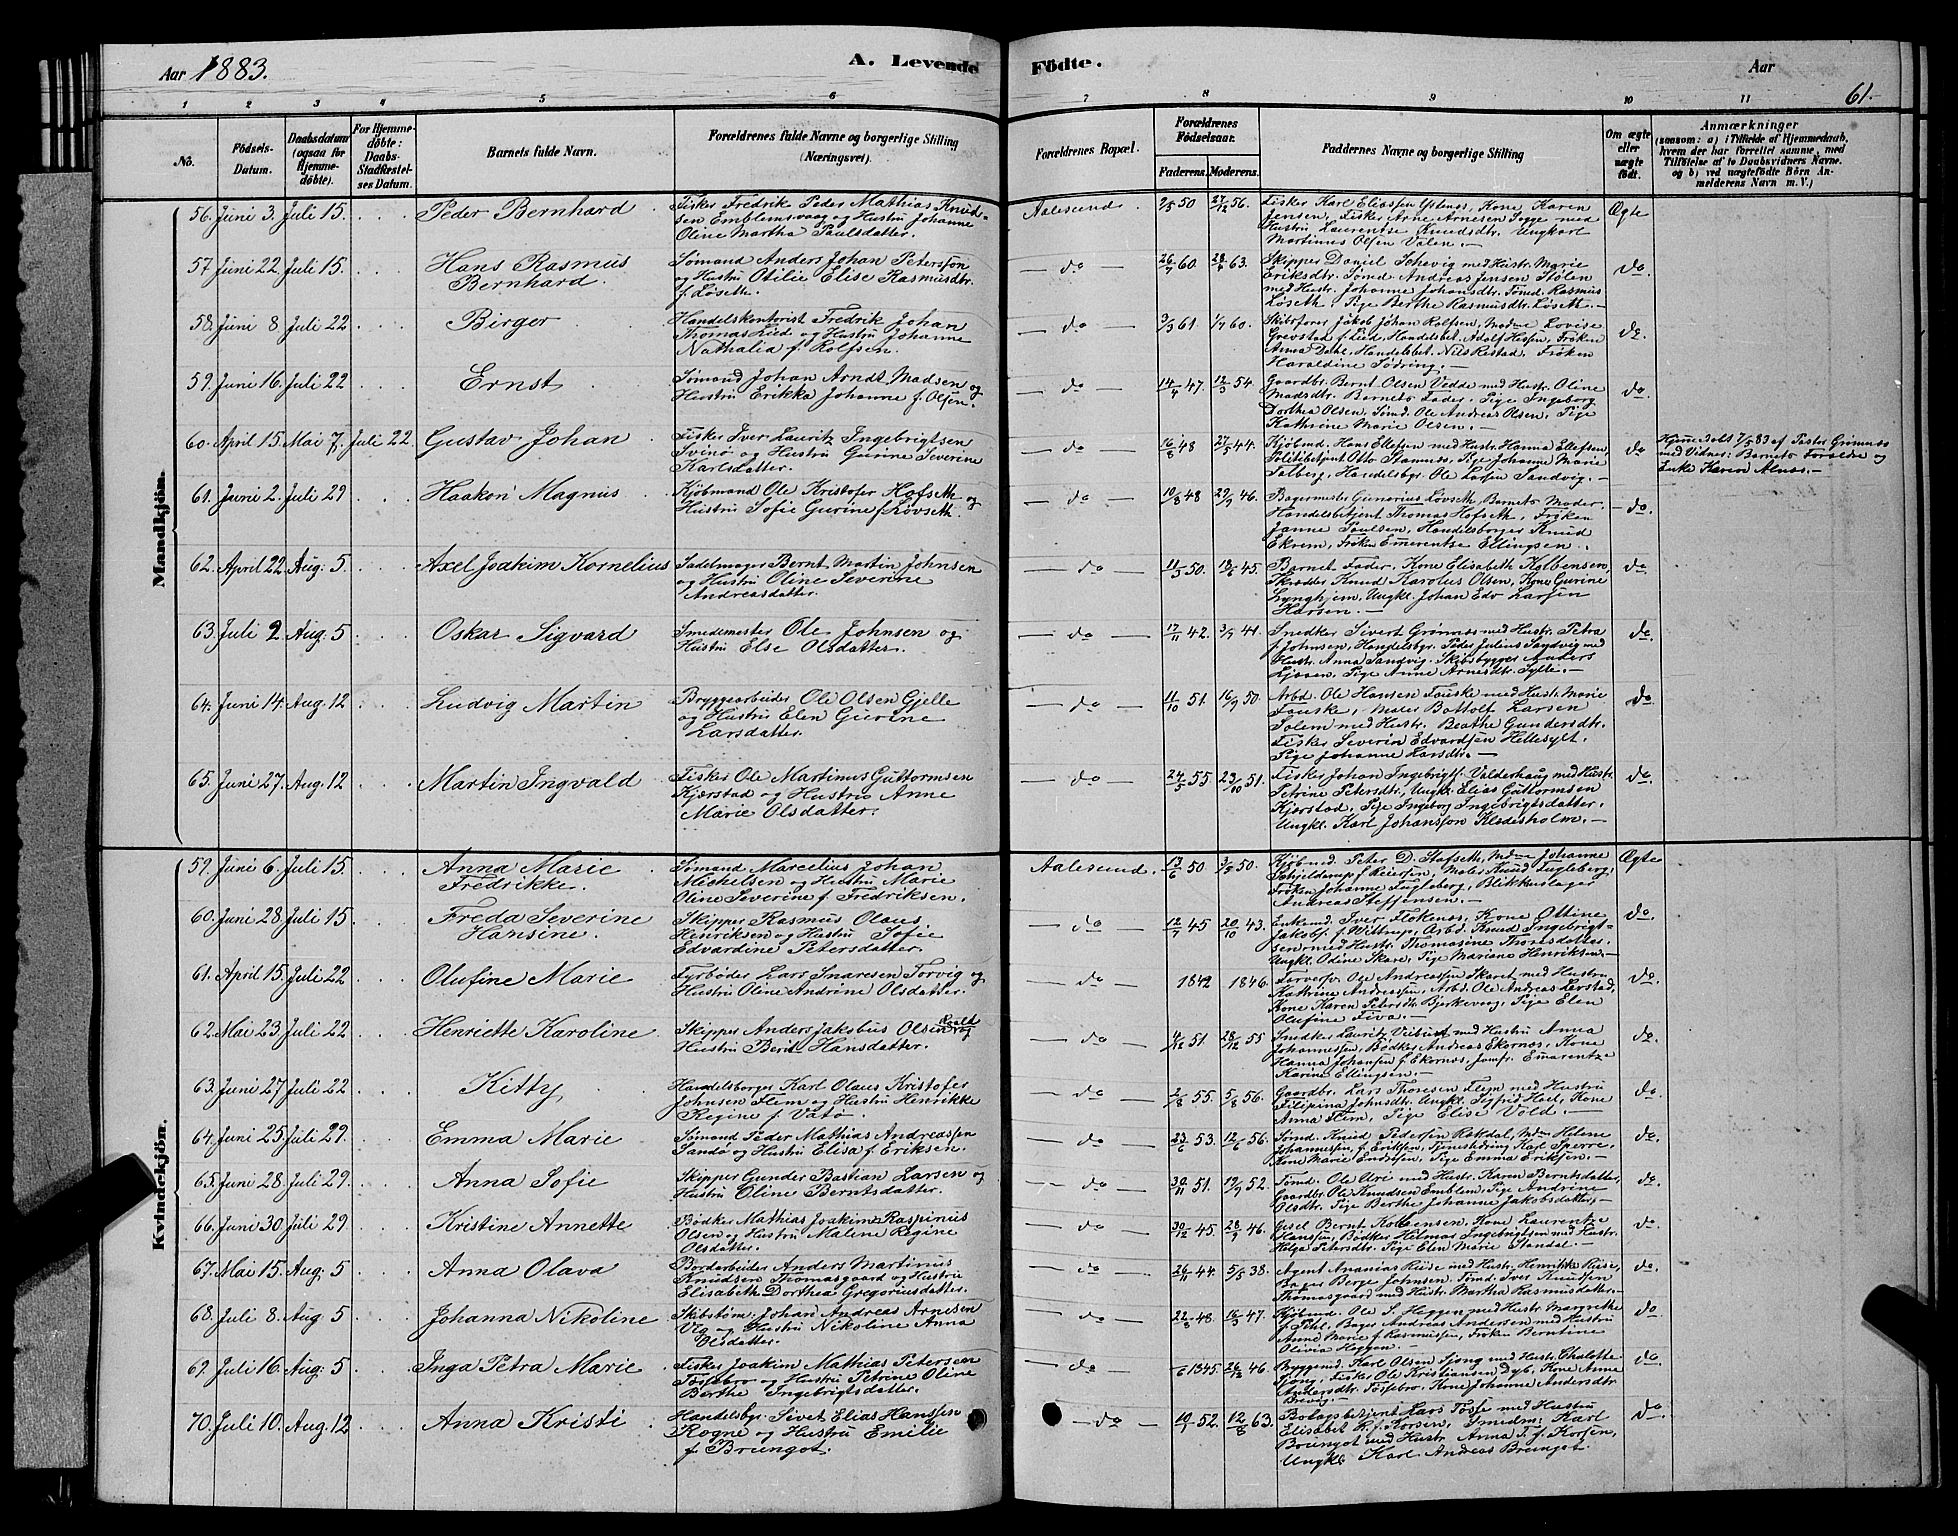 Aar 1883.
A. Levende Födte.
Aar
61.
1 2 3 4 5 6 7 8 9 10 11
No.
Födsels-Datum.
Daabsdatum (ogsaa for Hjemme-döbte).
For Hjemme-döbte: Daabs-Stadfæstel-ses Datum.
Barnets fulde Navn.
Forældrenes fulde Navne og borgerlige Stilling (Næringsvei).
Forældrenes Bopæl.
Forældrenes Födselsaar.
Faderens. Moderens.
Faddernes Navne og borgerlige Stilling
Om ægte eller uægte födt.
Anmærkninger
(saasom: a) i Tilfælde af Hjemmedaab,
hvem der har forrettet samme, med
Tilföielse af to Daabsvidners Navne.
og b) ved uægtefödte Börn An-
melderens Navn m. V.)
Mandkjön.
56. Juni 3. Juli 15. Peder Bernhard
Fisker Fredrik Peder Mathias Knud-
sen Emblemsvaag og Hustru Johanne
Oline Martha Paulsdatter.
Aalesund 2/5 50 27/12 56.
Fisker Karl Eliassen Ystenes, Kone Karen
Jensen, Fisker Arne Arnesen Sygge med
Hustru Laurentse Knudsdtr. Ungkarl
Martinus Olsen Valen.
Ægte
57 Juni 22. Juli 15. Hans Rasmus
Bernhard.
Sömand Anders Johan Peterson
og Hustru Otilie Elise Rasmusdtr.
f. Löseth.
do 26/7 60. 28/6 63.
Skipper Daniel Sohevig med Hustr. Marie
Eriksdtr. Sömd. Andreas Jensen Stölen
med Hustr. Johanne Johansdtr. Sömd. Rasmus
Löseth. Pige Berthe Rasmusdtr. Löseth.
do.
58. Juni 8. Juli 22 Birger
Handelskontorist Fredrik Johan
Thomas Lied og Hustru Johanne
Nathalia f. Rolfsen.
do 3/3 61 1/7 60.
Skibsförer Jakob Johan Rolfsen, Madme Lovise
Grevstad f. Lied, Handelsbet. Adolf Hessen, Fröken
Anna Dahl, Handelsbet. Nils Ristad, Fröken
Haraldine Södring.
do.
59. Juni 16. Juli 22 Ernst
Sömand Johan Arndt Madsen og
Hustru Erikka Johanne f. Olsen.
do 14/4 47. 12/3 54.
Gaardbr. Bernt Olsen Vedde med Hustr. Oline
Madsdtr. Barnets Fader. Pige Ingeborg
Dorthea Olsen, Sömd. Ole Andreas Olsen, Pige
Kathrine Marie Olsen.
do.
60. April 15. Mai 7. Juli 22. Gustav Johan
Fisker Iver Lauritz Ingebrigtsen
Svinö og Hustru Gurine Severine
Karlsdatter.
do 16/8 48 27/5 44.
Kjöbmd. Hans Ellefsen med Hustr. Hanna Ellefsen,
Politibetjent Otto Stamnes, Pige Johanne Marie
Solberg, Handelsbgr. Ole Larsen Sandvig.
do
Hjemmedöbt 7/5 83 af Pastor Grimnes
med Vidner: Barnets Forældre og
Enke Karen Alnes.
61. Juni 2. Juli 29 Haakon Magnus
Kjöbmand Ole Kristofer Hofseth og
Hustru Sofie Gurine f. Lövseth.
do 10/8 48 29/9 46.
Bagermester Gunarius Lövseth, Barnets Moder.
Handelsbetjent Thomas Hofseth, Fröken
Janne Paulsen, Handelsborger Knud
Ekrem, Fröken Emerentse Ellingsen.
do.
62. April 22. Aug. 5. Axel Joakim Kornelius
Sadelmager Bernt Martin Johnsen
og Hustru Oline Severine
Andreasdatter.
do 11/3 50. 18/6 45.
Barnet Fader. Kone Elisabeth Kolbensen,
Skrædder Knud Karolus Olsen, Kone Gurine
Lynghjem, Ungkl. Johan Edv Larsen
Harsen.
do.
63. Juli 2. Aug. 5 Oskar Sigvard
Smedemester Ole Johnsen og
Hustru Else Olsdatter.
do 17/11 42. 3/9 41.
Snedker Sivert Grönnes med Hustr. Petra
f. Johnsen. Handelsbgr. Peder Julius Sandvig med
Hustr. Anna Sandvig. Skibsbygger Anders
Ljosen, Pige Anne Arnesdtr. Sylte.
do.
64. Juni 14. Aug. 12 Ludvig Martin
Bryggearbeider Ole Olsen Gjelle
og Hustru Elen Gurine
Larsdatter.
do 11/10 51. 16/9 50.
Arbd. Ole Hansen Fauske med Hustr. Marie
Fauske, Maler Bottolf Larsen
Solem med Hustr. Beathe Gundersdtr.
Fisker Severin Edvardsen Hellesylt.
Pige Johanne Larsdtr.
do.
65. Juni 27. Aug. 12 Martin Ingvald
Fisker Ole Martinus Guttormsen
Kjerstad og Hustru Anne
Marie Olsdatter.
do 24/5 55 29/10 51.
Fisker Johan Ingebrigts. Valderhaug med Hustr.
Petrine Petersdtr, Ungkl. Elias Guttormsen
Kjerstad, Pige Ingeborg Ingebrigtsdatter.
Ungkl. Karl Johansson Klædesholm.
do.
Kvindekjön.
59. Juni 6. Juli 15. Anna Marie
Fredrikke.
Sömand Marcelius Johan
Michelsen og Hustru Marie
Oline Severine f. Fredriksen.
Aalesund. 13/6 50 3/8 50.
Kjöbmd. Peter D. Stafseth, Mdme Johanne
Schjeldrup f. Reiersen, Maler Knud Fugleberg,
Fröken Johanne Fugleberg, Blikkenslager
Andreas Steffensen.
Ægte
60. Juni 28. Juli 15 Freda Severine
Hansine.
Skipper Rasmus Olaus
Henriksen og Hustru Sofie
Edvardine Petersdatter.
do 12/7 45 20/10 43.
Enkemd. Iver Flokenes, Kone Oltine
Jakobs. f. Wittrup, Arbd. Knud Ingebrigt-
sen med Hustr. Thomasine Thoresdatter.
Ungkl. Odine Skare, Pige Mariane Henriksen.
do.
61. April 15. Juli 22 Olufine Marie
Fyrböder Lars Snaresen Torvig og
Hustru Oline Andrine Olsdatter.
do 1842 1846.
Farversv. Ole Andreassen Skaret med Hustru
Kathrine Andreassen, Arbd. Ole Andreas Lerstad,
Kone Karen Petersdtr. Bjerkevog, Pige Elen
Olufine Fiva.
do.
62. Mai 23 Juli 22 Henriette Karoline
Skipper Anders Jakobus Olsen Roald og
Hustru Berit Hansdatter.
do 4/12 51 28/12 55
Snedker Lauritz Veibust med Hustru Anna
Johannessen, Bödker Andreas Ekornes, Kone
Hanna Johansen f. Ekornes, Jomfr. Emarentze
Karine Ellingsen.
do.
63. Juni 27 Juli 22 Kitty
Handelsborger Karl Olaus Kristofer
Johnsen Flem og Hustru Henrikke
Regine f. Vatö.
do 2/8 55. 5/8 56.
Gaardbr. Lars Thoresen Flem med Hustru
Filipina Johnsdtr. Ungkl. Sigfrid Hoel, Kone
Anna Flem, Pige Elise Vold.
do.
64. Juni 25. Juli 29. Emma Marie
Sömand Peder Mathias Andreassen
Sandö og Hustru Elisa f. Eriksen.
do 23/6 53. 12/6 56.
Sömd. Knud Pedersen Rokdal, Mdme Helene
Johannessen, f. Eriksen, Tjenestedreng Karl Sperre,
Kone Marie Endresen, Pige Emma Eriksen.
do.
65. Juni 28. Juli 29. Anna Sofie
Skipper Gunder Bastian Larsen og
Hustru Oline Berntsdatter.
do 30/11 51. 19/9 52.
Tömd. Ole Ure med Hustr. Karen Berntsdatter,
Gaardbr. Ole Knudsen Emblem, Pige Andrine
Olsdtr. Pige Berthe Johanne Jakobsdatter.
do.
66. Juni 30. Juli 29. Kristine Annette
Bödker Mathias Joakim Raspinus
Olsen og Hustru Malene Regine
Olsdatter.
do 30/12 45. 28/9 46.
Gisel Bernt Kolbensen, Kone Laurentze
Hanssen, Bödker Helmer Ingebrigtsen med Hustr.
Helga Petersdtr. Pige Elen Marie Standal.
do.
67. Mai 15. Aug. 5 Anna Olava
Borderbeider Anders Martinus
Knudsen Thomasgaard og Hustru
Elisabeth Dorthea Gregoriusdatter.
do 26/11 44. 5/5 38.
Agent Ananias Riise med Hustr. Henrikke Riise,
Bager Berge Johnsen, Tömd. Iver Knudsen
Thomasgaard med Hustr. Martha Rasmusdatter.
do.
68. Juli 8. Aug. 5 Johanna Nikoline
Skibstöm. Johan Andreas Arnesen
Vig og Hustru Nikoline Anna
Olsdatter.
do 22/8 48. 16/3 47.
Kjöbmd. Ole S. Heggen med Hustr. Margrethe
f. Pihl, Bager Andreas Andersen med Hustru
Anne Marie f. Rasmussen, Fröken Berntine
Olivia Heggen.
do
69. Juli 16. Aug. 5 Inga Petra Marie
Fisker Joakim Mathias Petersen
Fossebro og Hustru Petrine Oline
Berthe Ingebrigtsdatter.
do 6 1845. 26/12 46.
Byggmd. Karl Olsen Sjong med Hustr. Chalotte
Sjong, Fisker Ole Kristiansen Dyb, Kone Anne
Andersdtr. Fossebro, Kone Johanne Andersdtr
Brevig.
do.
70. Juli 10. Aug. 12 Anna Kristi
Handelsbgr. Sivet Elias Hanssen
Rogne og Hustru Emilie
f. Brungot.
do 19/1 52. 12/8 63.
Betagsbetjent Lars Fosse med Hustru
Elisabet R. f. Korsen, Smedm. Karl
Brungot med Hustr. Anna T. f. Korsen,
Ungkl. Karl Andreas Brungot.
do.